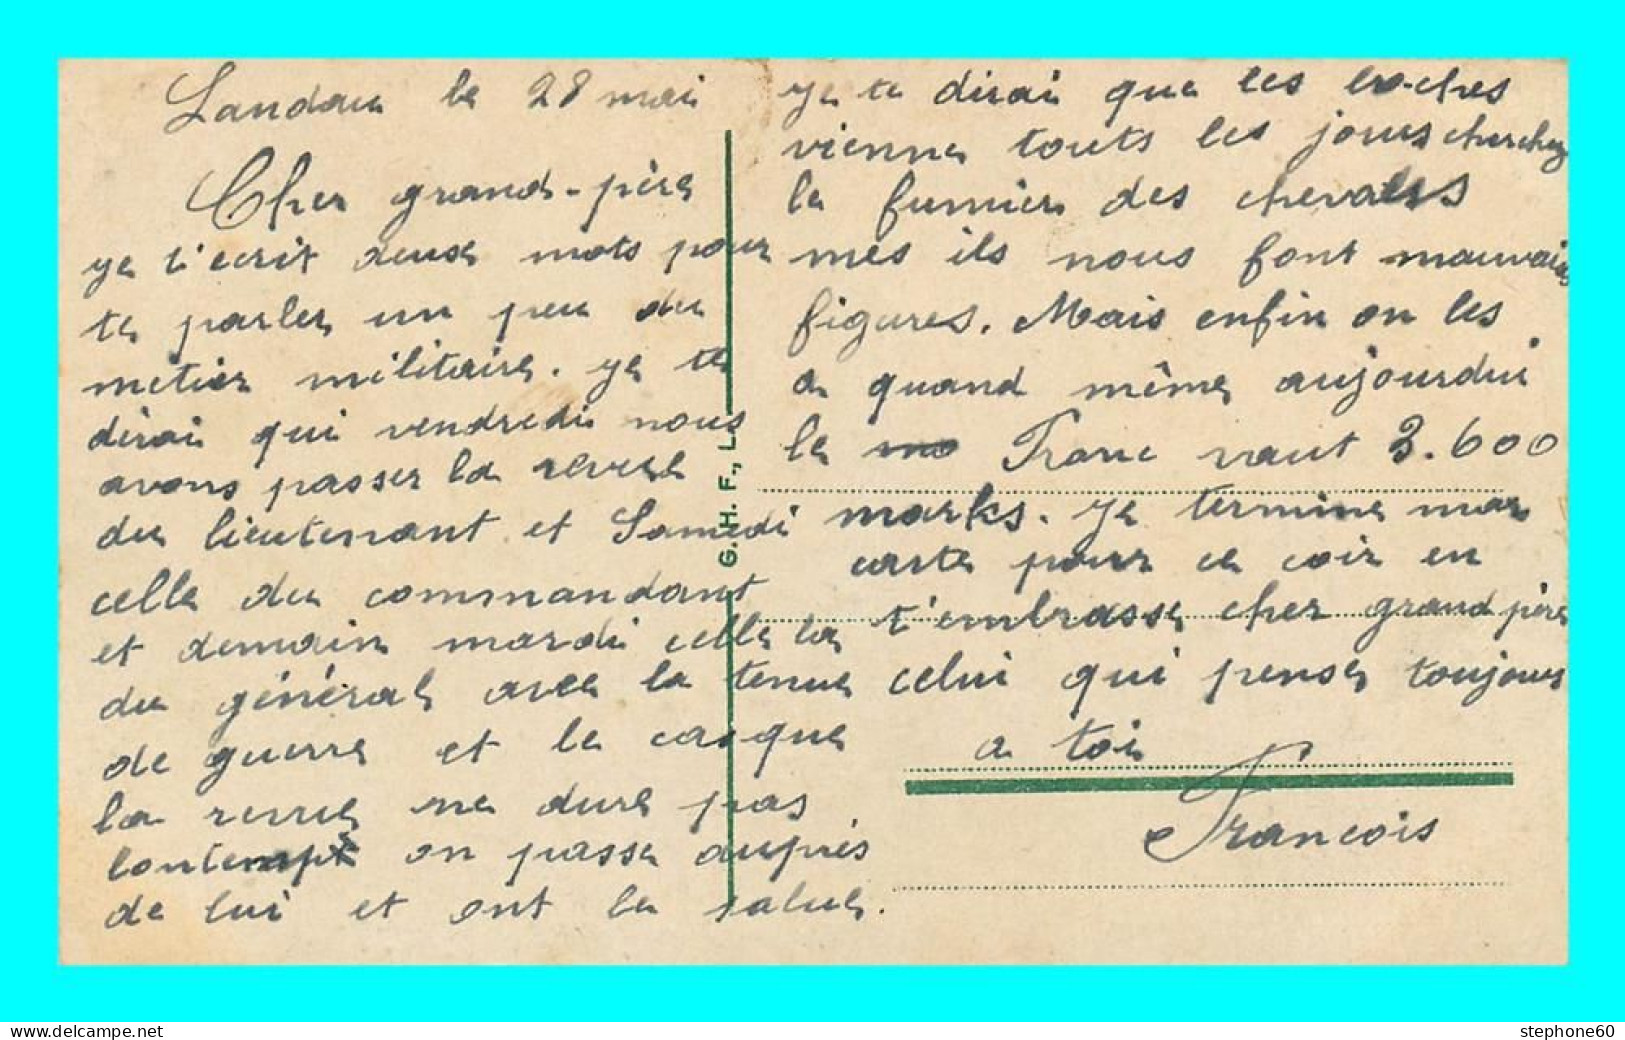 Landau le 28 mai
Cher grand-père
ye t'ecrit deuse mots pour
te parler un peu du
metier militaire. ye te
dirai qui vendredi nous
avons passer la revue
du lieutenant et Samedi
celle du commandant
et demain mardi celle la
du général avec la tenue
de guerre et le casque
la revue ne dure pas
lontempt on passe auprès
de lui et ont le salue.
ye te dirai que les boches
vienne touts les jours cherchez
le fumier des chevales
mes ils nous font mauvais
figures. Mais enfin on les
a quand même aujourdui
le Franc vaut 3.600
marks. ye termine mar
carte pour ce soir en
t'embrasse cher grand père
celui qui penser toujours
a toi
Francois
G. H. F., L.
www.delcampe.net
stephone60